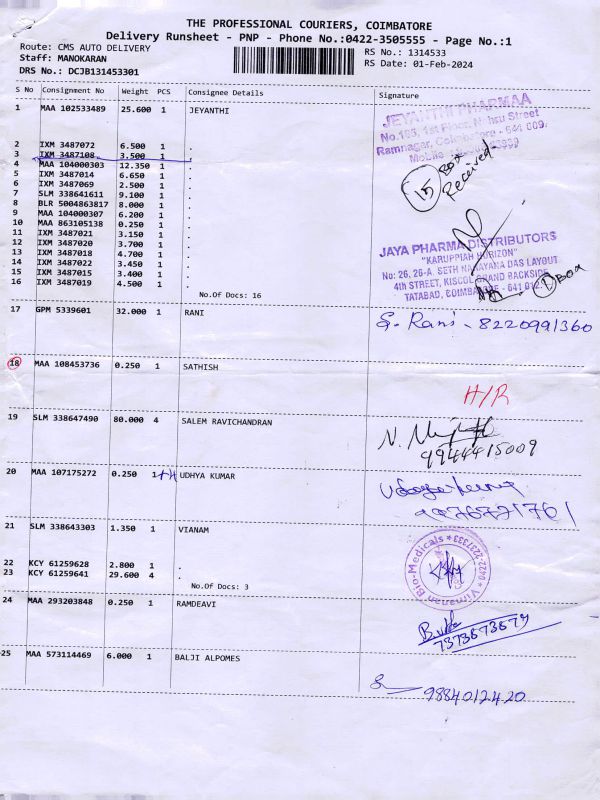 THE PROFESSIONAL COURIERS, COIMBATORE
Delivery Runsheet - PNP - Phone No.:0422-3505555 - Page No.:1
Route: CMS AUTO DELIVERY
RS No.: 1314533
Staff: MANOKARAN
RS Date: 01-Feb-2024
DRS No.: DCJB131453301
S No Consignment No Weight PCS Consignee Details Signature
1 MAA 102533489 25.600 1 JEYANTHI
JEYANTHI PHARMAA
Ramnagar, Coimbatore - 641 009.
2 IXM 3487072 6.500 1 .
3 IXM 3487108 3.500 1 .
4 MAA 104000303 12.350 1 .
5 IXM 3487014 6.650 1 .
6 IXM 3487069 2.500 1 .
7 SLM 338641611 9.100 1 .
8 BLR 5004863817 8.000 1 .
9 MAA 104000307 6.200 1 .
10 MAA 863105138 0.250 1 .
11 IXM 3487021 3.150 1 .
12 IXM 3487020 3.700 1 .
13 IXM 3487018 4.700 1 .
14 IXM 3487022 3.450 1 .
15 IXM 3487015 3.400 1 .
16 IXM 3487019 4.500 1 .
No.Of Docs: 16
15 Box
Received
JAYA PHARMA DISTRIBUTORS
"KARUPPIAH HORIZON"
No: 26, 26-A, SETH NARAYANA DAS LAYOUT
4th STREET, KISCOL GRAND BACKSIDE
TATABAD, COIMBATORE - 641 012.
1 Box
17 GPM 5339601 32.000 1 RANI
G. Rani - 8220991360
18 MAA 108453736 0.250 1 SATHISH
H/R
19 SLM 338647490 80.000 4 SALEM RAVICHANDRAN
9944415009
20 MAA 107175272 0.250 1 UDHYA KUMAR
21 SLM 338643303 1.350 1 VIANAM
22 KCY 61259628 2.800 1 .
23 KCY 61259641 29.600 4 .
No.Of Docs: 3
Bio-Medicals
24 MAA 293203848 0.250 1 RAMDEAVI
7373673679
25 MAA 573114469 6.000 1 BALJI ALPOMES
9884012420